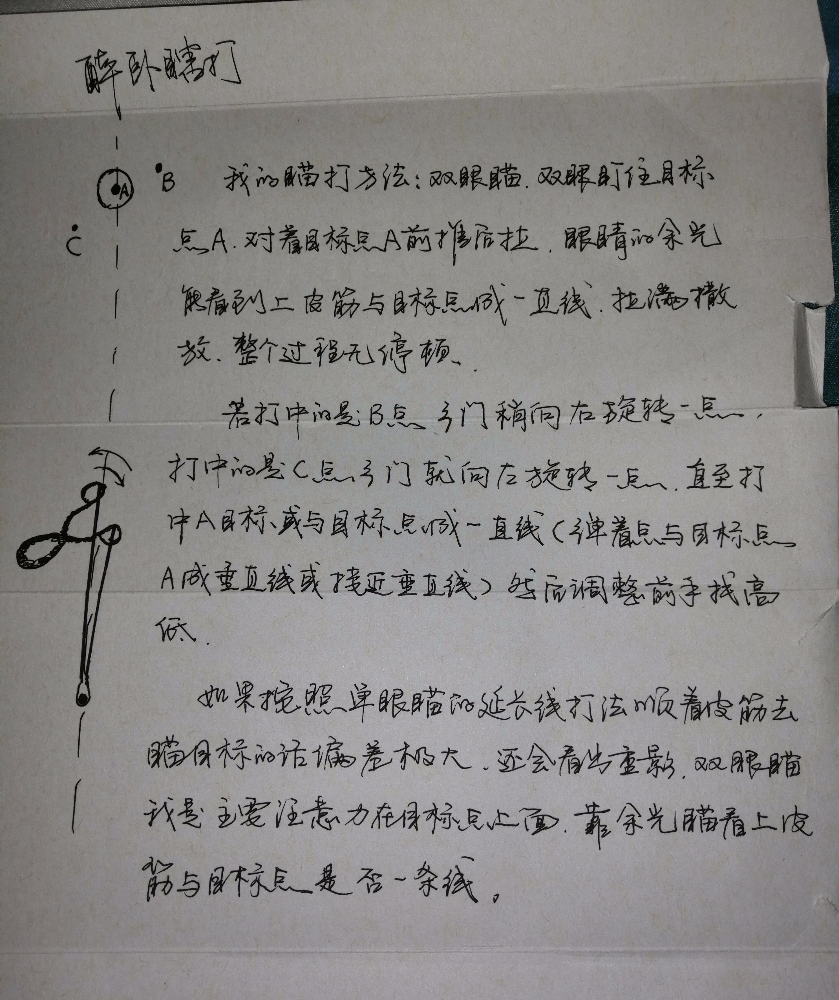 醉卧瞎打
A
B
C
我的瞄打方法:双眼瞄.双眼盯住目标
点A.对着目标点A前推后拉.眼睛的余光
能看到上皮筋与目标点成一直线.拉满撒
放.整个过程无停顿、
若打中的是B点弓门稍向右旋转一点.
打中的是C点弓门就向左旋转一点.直至打
中A目标或与目标点成一直线(弹着点与目标点
A成垂直线或接近垂直线)然后调整前手找高
低.
如果按照单眼瞄的延长线打法顺着皮筋去
瞄目标的话偏差极大.还会看出重影.双眼瞄
我是主要注意力在目标点上面.靠余光瞄看上皮
筋与目标点是否一条线。